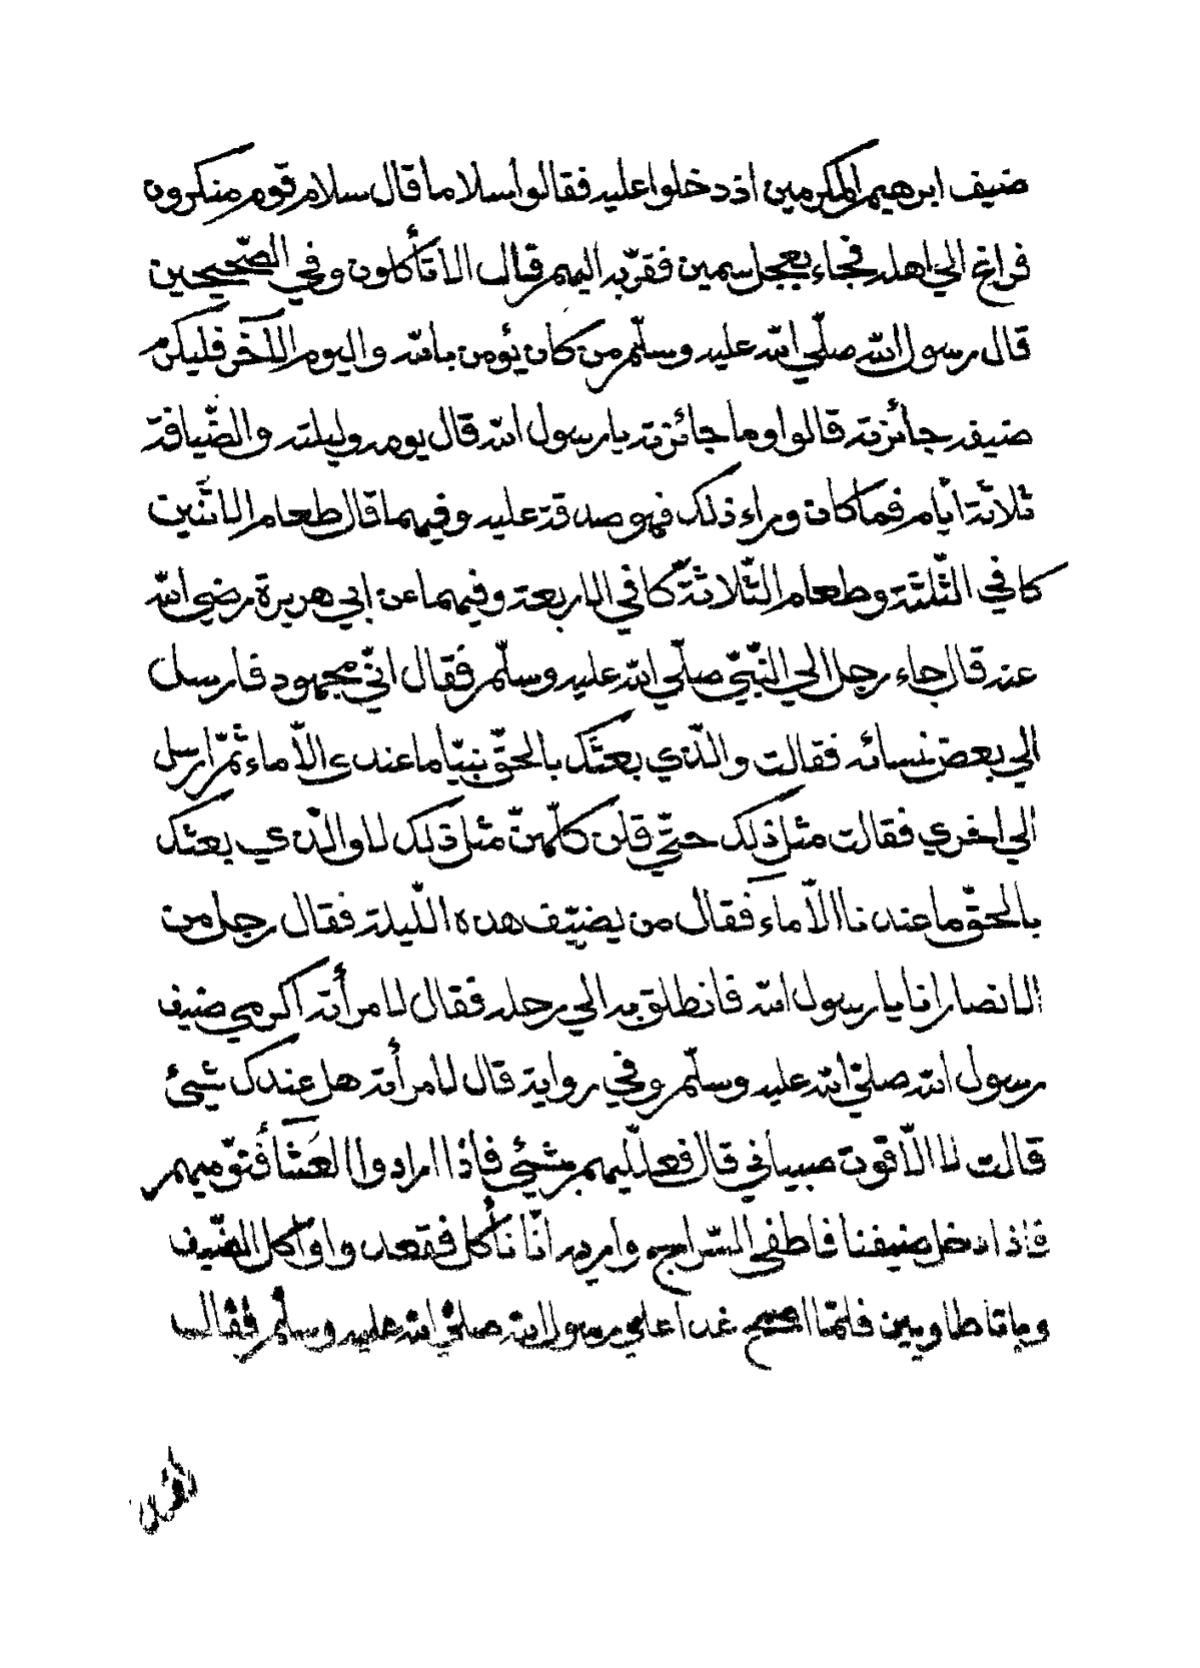 ضيف ابرهيم المكرمين اذ دخلوا عليه فقالوا سلاما قال سلام قوم منكرون
فراغ الي اهله فجاء بعجل سمين فقرّبه اليهم قال الا تأكلون وفي الصّحيحين
قال رسول الله صلّي الله عليه وسلّم من كان يؤمن بالله واليوم الآخر فليكرم
ضيفه جائزته قالوا وما جائزته يا رسول الله قال يومه وليلته والضّيافة
ثلاثة ايّام فما كان وراء ذلك فهو صدقة عليه وفيهما قال طعام الاثنين
كافي الثّلثة وطعام الثّلاثة كافي الاربعة وفيهما عن ابي هريرة رضي الله
عنه قال جاء رجل الي النّبيّ صلّي الله عليه وسلّم فقال انّي مجهود فارسل
الي بعض نسائه فقالت والّذي بعثك بالحقّ نبيّا ما عندي الّا ماء ثمّ ارسل
الي اخري فقالت مثل ذلك حتّي قلن كلّهنّ مثل ذلك لا والّذي بعثك
بالحقّ ما عندنا الّا ماء فقال من يضيّف هذه اللّيلة فقال رجل من
الانصار انا يا رسول الله فانطلق به الي رحله فقال لامرأته اكرمي ضيف
رسول الله صلّي الله عليه وسلّم وفي رواية قال لامرأته هل عندك شيئ
قالت لا الّا قوت صبياني قال فعلّليهم بشيئ فاذا ارادوا العَشَا فنوّميهم
فاذا دخل ضيفنا فاطفي السّراج واريه انّا نأكل فقعد وا واكل الضّيف
وباتا طاويين فلمّا اصبح غدا علي رسول الله صلّي الله عليه وسلّم فقال
لقد